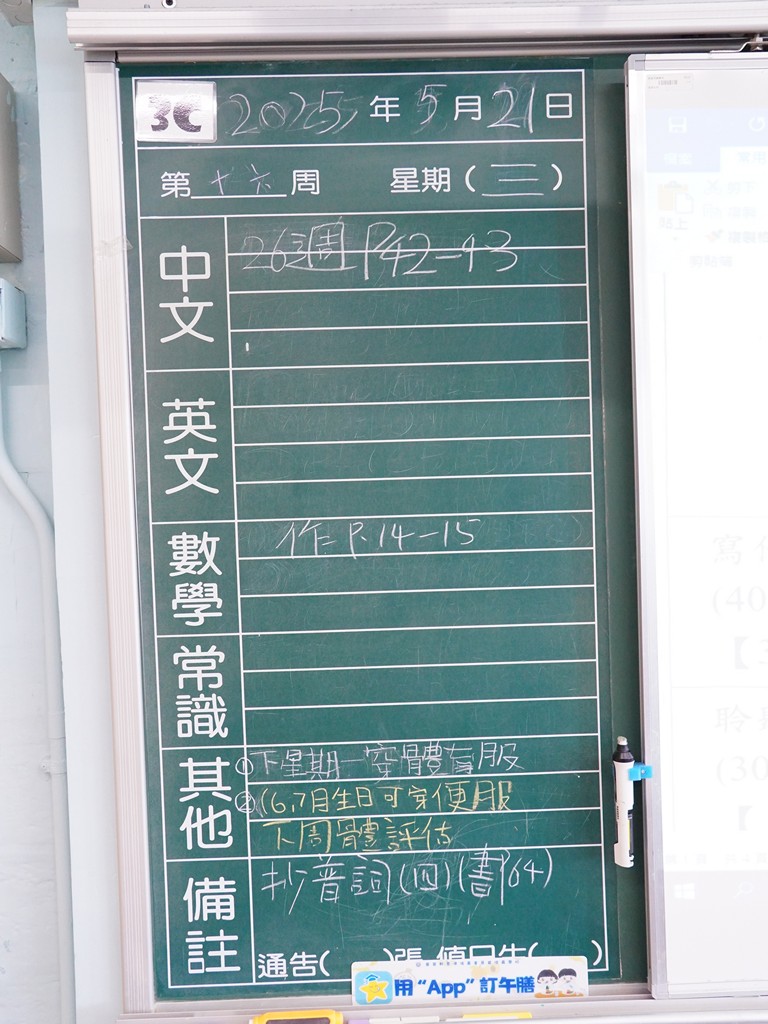 3C 2025年5月21日
第十六周 星期(三)
中文 26週 P42-43
英文
數學 作= P.14-15
常識
其他 ①下星期一穿體育服
②(6,7月生日可穿便服
下周體評估
備註 抄普詞(四)(書P64)
通告( )張 值日生( )
用“App”訂午膳
寫
(40
【
聆
(30
【